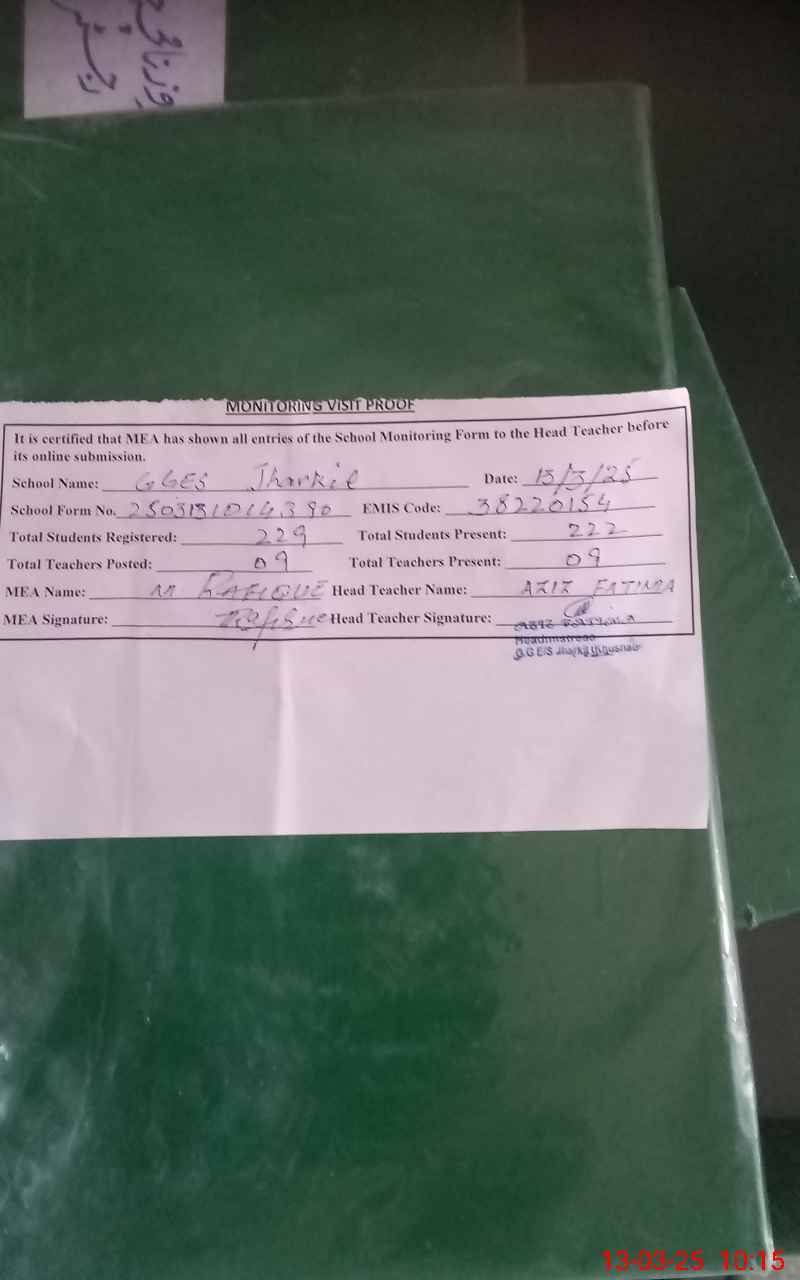 رجسٹر
MONITORING VISIT PROOF
It is certified that MEA has shown all entries of the School Monitoring Form to the Head Teacher before
its online submission.
School Name: GGES Jharkil Date: 13/3/25
School Form No. EMIS Code: 38220154
Total Students Registered: 229 Total Students Present: 222
Total Teachers Posted: 09 Total Teachers Present: 09
MEA Name: M RAFIQUE Head Teacher Name: AZIZ FATIMA
MEA Signature: Rafique Head Teacher Signature:
AZIZ FATIMA
Headmistress
G.G E/S Jharkil
13-03-25 10:15